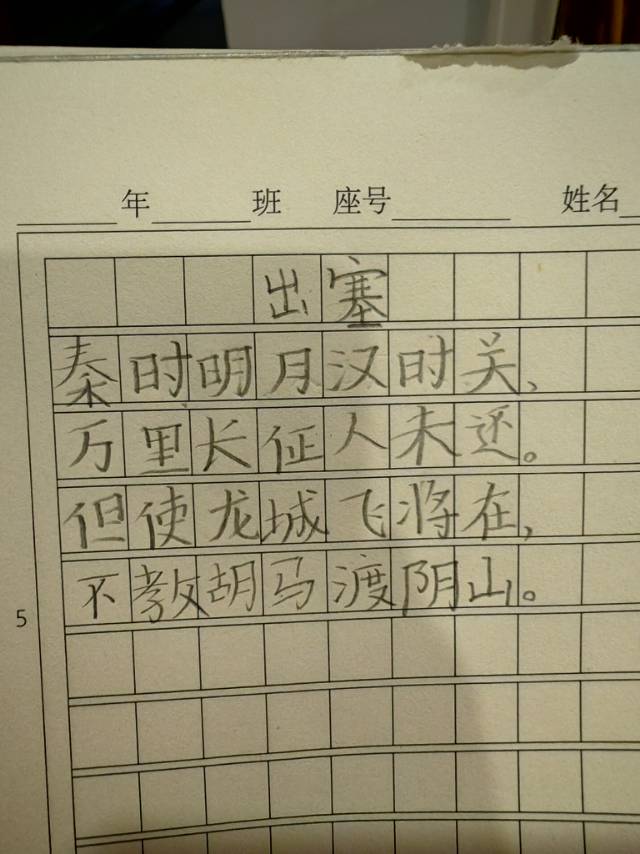 年 班 座号 姓名
出塞
秦时明月汉时关,
万里长征人未还。
但使龙城飞将在,
不教胡马渡阴山。
5